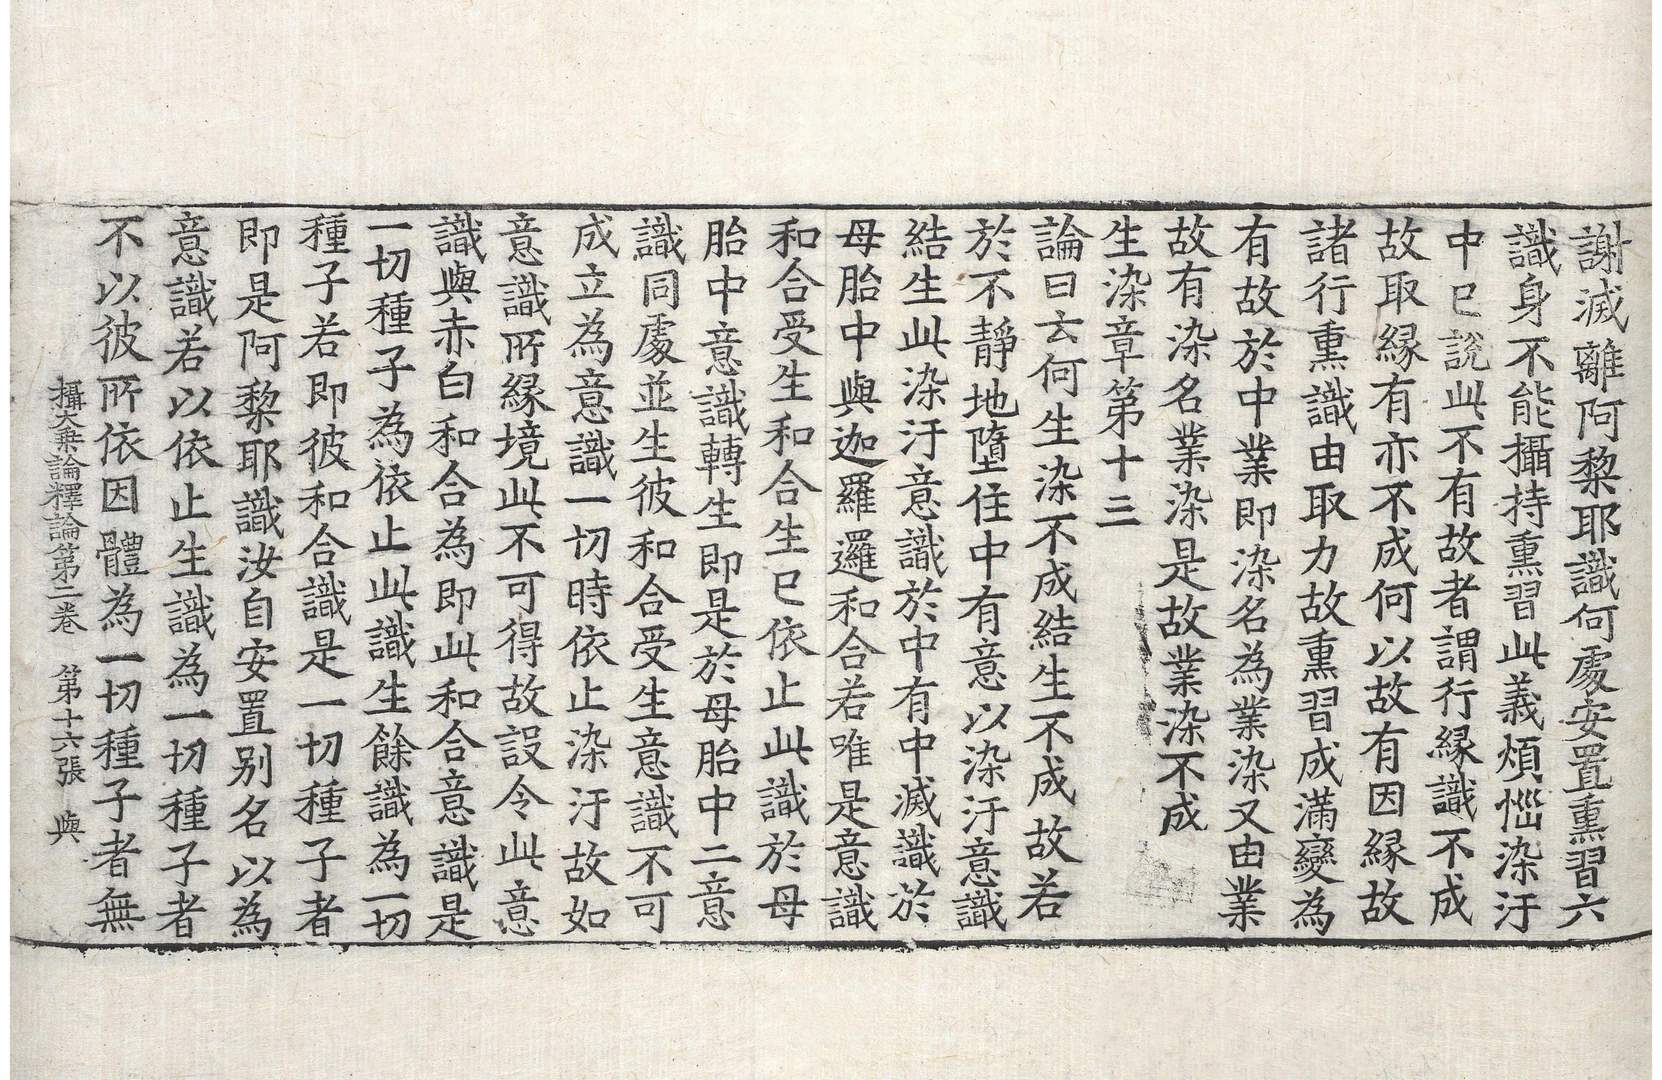 謝滅離阿黎耶識何處安置熏習六
識身不能攝持熏習此義煩惱染汙
中已說此不有故者謂行緣識不成
故取緣有亦不成何以故有因緣故
諸行熏識由取力故熏習成滿變為
有故於中業即染名為業染又由業
故有染名業染是故業染不成
生染章第十三
論曰云何生染不成結生不成故若
於不靜地墮住中有意以染汙意識
結生此染汙意識於中有中滅識於
母胎中與迦羅邏和合若唯是意識
和合受生和合生已依止此識於母
胎中意識轉生即是於母胎中二意
識同處並生彼和合受生意識不可
成立為意識一切時依止染汙故如
意識所緣境此不可得故設令此意
識與赤白和合為即此和合意識是
一切種子為依止此識生餘識為一切
種子若即彼和合識是一切種子者
即是阿黎耶識汝自安置別名以為
意識若以依止生識為一切種子者
不以彼所依因體為一切種子者無
攝大乘論釋論第二卷　第十六張　與